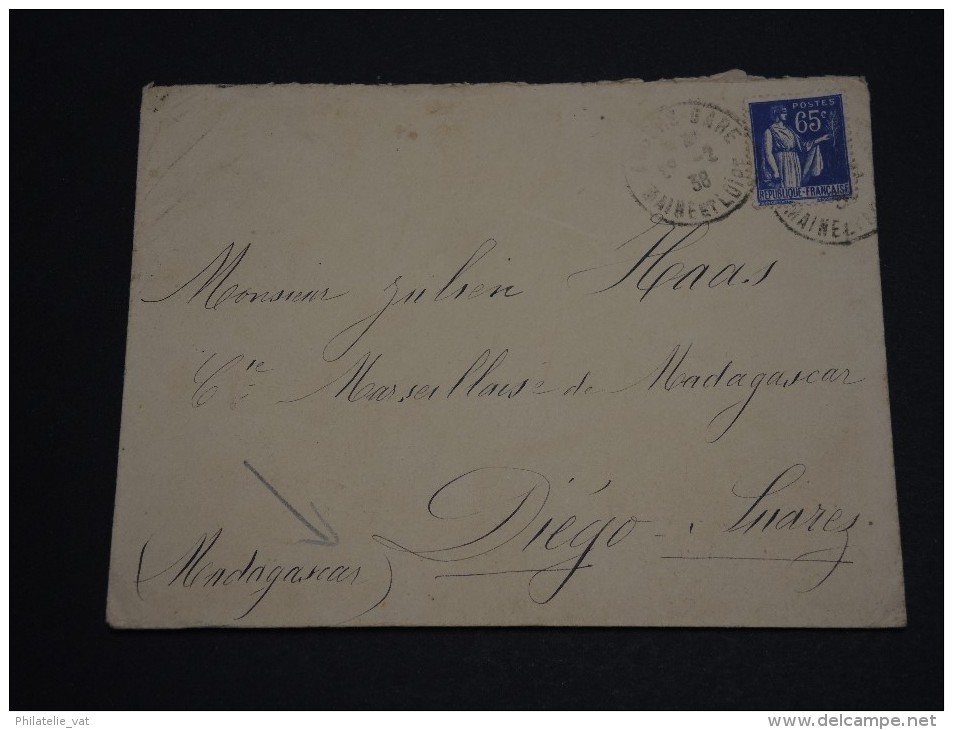 GARE
-2
38
MAINE ET LOIRE
POSTES
65c
REPUBLIQUE-FRANÇAISE
MAINE
Monsieur Julien Haas
Cie Marseillaise de Madagascar
Diégo-Suarez.
(Madagascar)
Philatelie_vat
www.delcampe.net